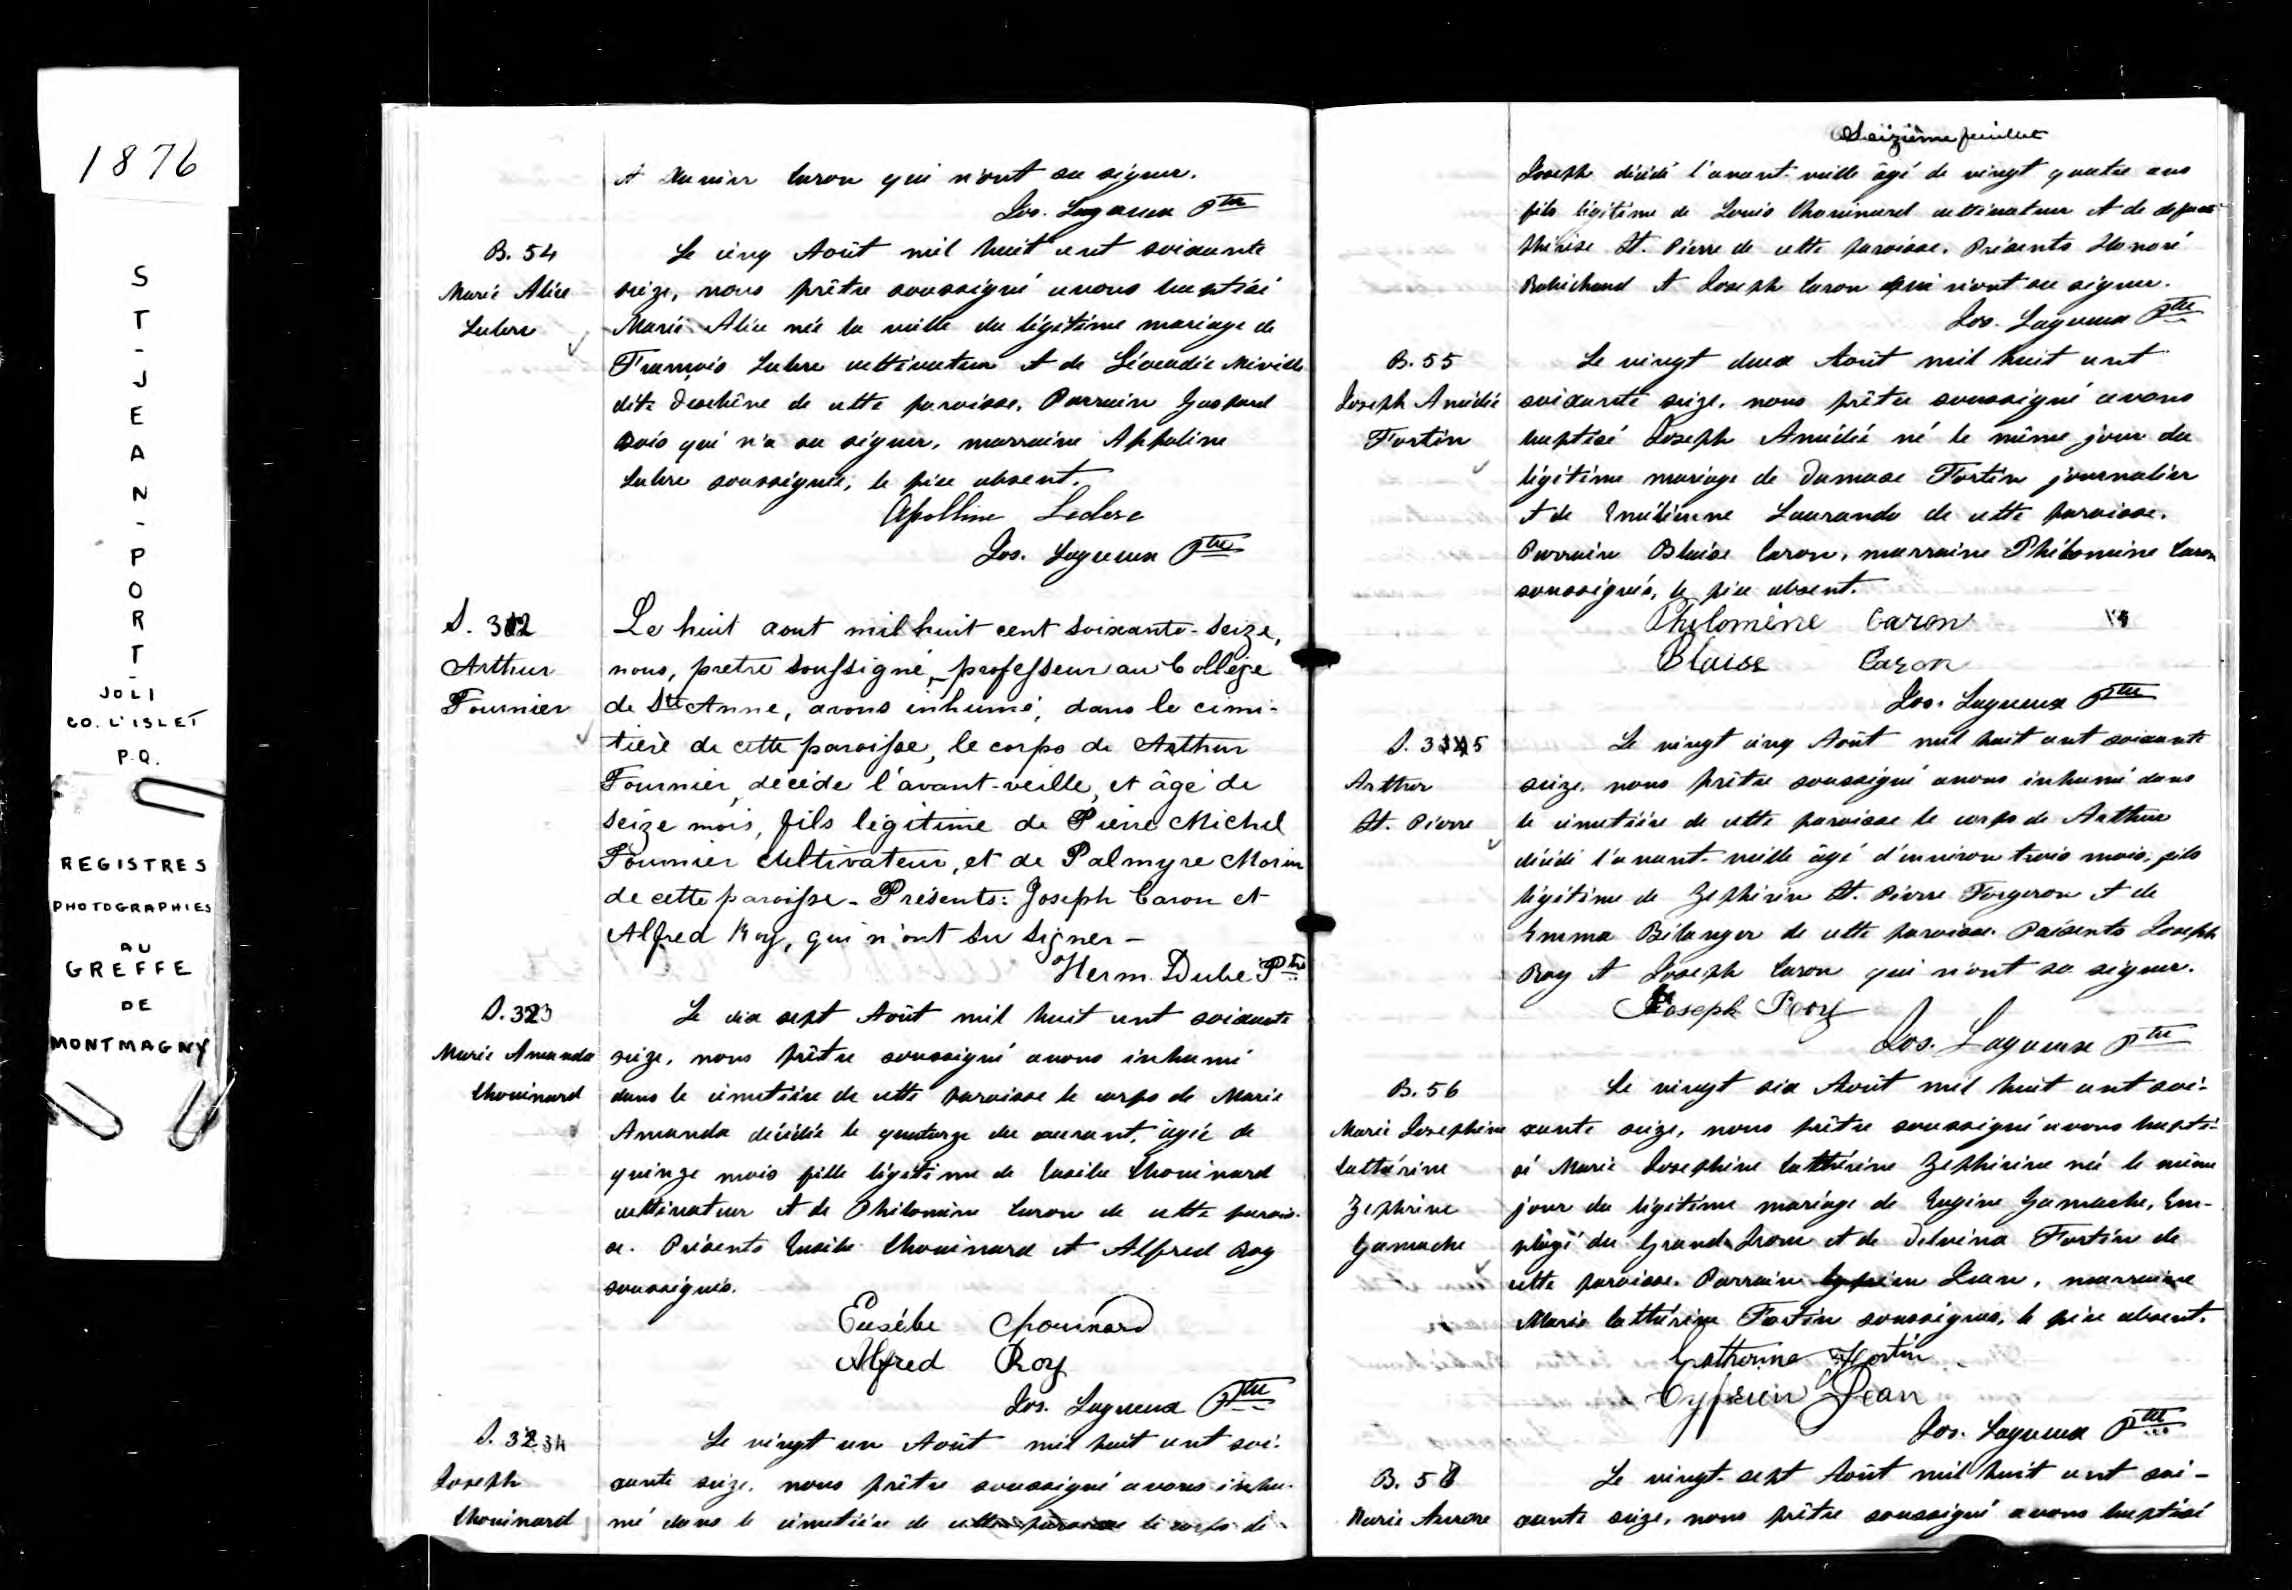 1876
ST-JEAN-PORT-
JOLI
CO. L'ISLET
P.Q.
REGISTRES
PHOTOGRAPHIES
AU
GREFFE
DE
MONTMAGNY
et Xavier Caron qui n'ont su signer.
Jos. Lagueux Ptre
B. 54
Marie Alice
Leclerc
Le cinq Août mil huit cent soixante
seize, nous prêtre soussigné avons baptisé
Marie Alice née la veille du légitime mariage de
François Leclerc cultivateur et de Léocadie Miville
dite Deschêne de cette paroisse. Parrain Gaspard
qui n'a su signer, marraine Appoline
Leclerc soussignée, le père absent.
Apolline Leclerc
Jos. Lagueux Ptre
S. 32
Arthur
Fournier
Le huit aout mil huit cent soixante-seize,
nous, pretre soussigné, professeur au Collège
de Ste Anne, avons inhumé, dans le cimi-
tière de cette paroisse, le corps de Arthur
Fournier, décédé l'avant-veille, et âgé de
seize mois, fils légitime de Pierre Michel
Fournier cultivateur, et de Palmyre Morin
de cette paroisse - Présents: Joseph Caron et
Alfred Roy, qui n'ont su signer -
Herm. Dubé Ptre
S. 33
Marie Amanda
Chouinard
Le dix sept Août mil huit cent soixante
seize, nous prêtre soussigné avons inhumé
dans le cimetière de cette paroisse le corps de Marie
Amanda décédée le quatorze du courant, âgée de
quinze mois fille légitime de Eusèbe Chouinard
cultivateur et de Philomène Caron de cette parois-
se. Présents Eusèbe Chouinard et Alfred Roy
soussignés.
Eusébe Chouinard
Alfred Roy
Jos. Lagueux Ptre
S. 34
Joseph
Chouinard
Le vingt un Août mil huit cent soi-
xante seize, nous prêtre soussigné avons inhu-
mé dans le cimetière de cette paroisse le corps de
Seizième feuillet
Joseph décédé l'avant-veille âgé de vingt quatre ans
fils légitime de Louis Chouinard cultivateur et de défunte
Thérèse St. Pierre de cette paroisse. Présents Honoré
Robichaud et Joseph Caron qui n'ont su signer.
Jos. Lagueux Ptre
B. 55
Joseph Amédée
Fortin
Le vingt deux Août mil huit cent
soixante seize, nous prêtre soussigné avons
baptisé Joseph Amédée né le même jour du
légitime mariage de Damase Fortin journalier
et de Emélienne Laurendo de cette paroisse.
Parrain Blaise Caron, marraine Philomène Caron
soussignés, le père absent.
Philomène Caron
Blaise Caron
Jos. Lagueux Ptre
S. 35
Arthur
St. Pierre
Le vingt cinq Août mil huit cent soixante
seize, nous prêtre soussigné avons inhumé dans
le cimetière de cette paroisse le corps de Arthur
décédé l'avant-veille âgé d'environ trois mois, fils
légitime de Zéphirin St. Pierre Forgeron et de
Emma Bélanger de cette paroisse. Présents Joseph
Roy et Joseph Caron qui n'ont su signer.
Joseph Roy
Jos. Lagueux Ptre
B. 56
Marie Josephine
Cathérine
Zephirine
Gamache
Le vingt six Août mil huit cent soi-
xante seize, nous prêtre soussigné avons bapti-
sé Marie Josephine Cathérine Zephirine née le même
jour du légitime mariage de Eugène Gamache, Em-
ployé du Grand Tronc et de Delvina Fortin de
cette paroisse. Parrain Cyprien Jean, marraine
Marie Cathérine Fortin soussignés, le père absent.
Catherine Fortin
Cyprien Jean
Jos. Lagueux Ptre
B. 57
Marie Aurore
Le vingt-sept Août mil huit cent soi-
xante seize, nous prêtre soussigné avons baptisé